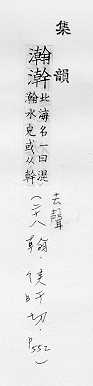 集韻
瀚澣北海名一曰混
瀚水皃或从幹
去聲(二十八翰.侯旰切.P552)